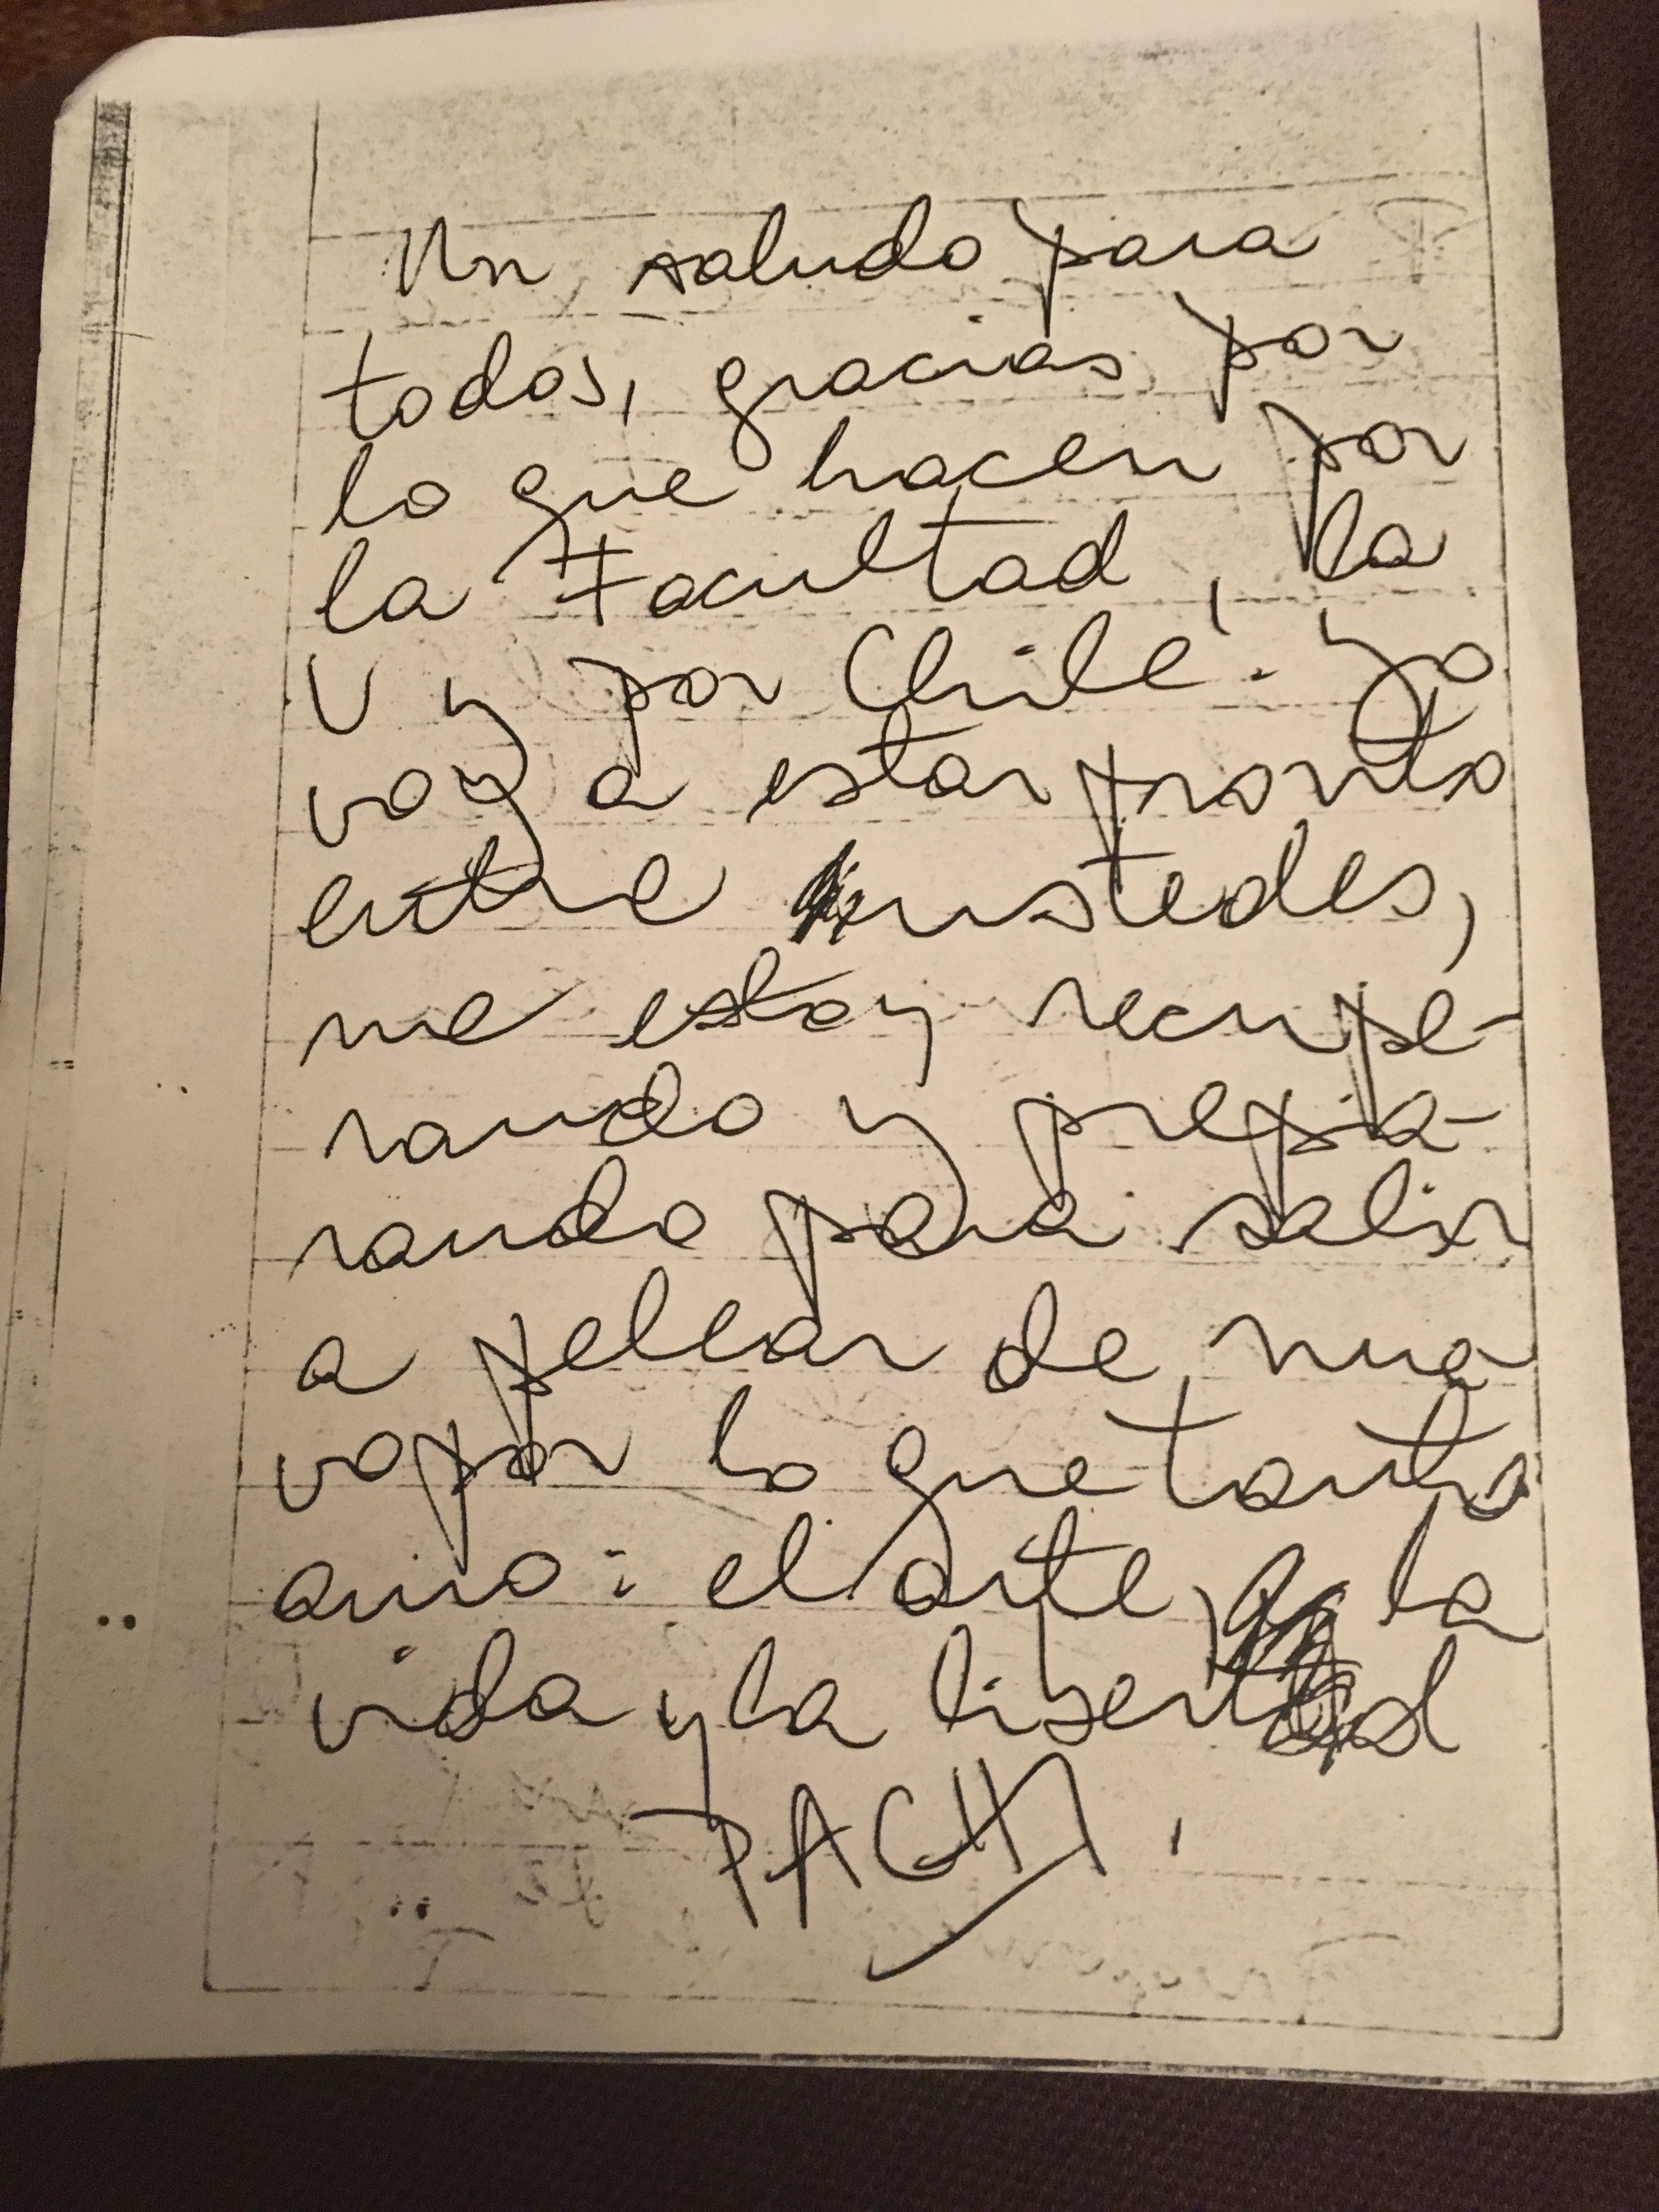 Un saludo para
todos, gracias por
lo que hacen por
la Facultad, la
U y por Chile. Yo
voy a estar pronto
entre ustedes,
me estoy recupe-
rando y prepa-
rando para salir
a pelear de nue
vo por lo que tanto
amo: el arte, la
vida y la libertad
PACHI.